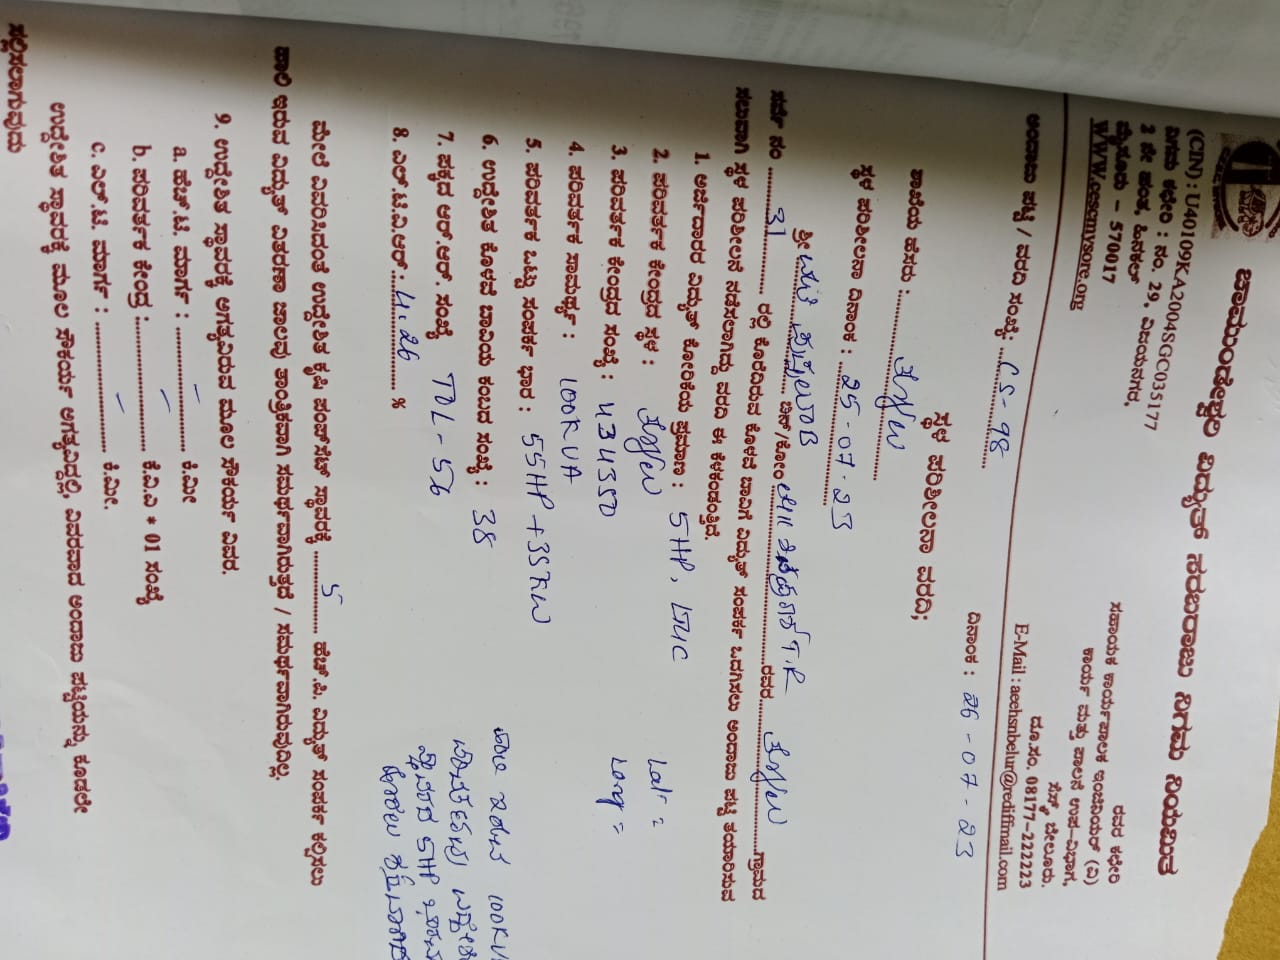 ಚಾಮುಂಡೇಶ್ವರಿ ವಿದ್ಯುತ್ ಸರಬರಾಜು ನಿಗಮ ನಿಯಮಿತ
(CIN) : U40109KA2004SGC035177
ನಿಗಮ ಕಛೇರಿ : ನಂ. 29, ವಿಜಯನಗರ,
2 ನೇ ಹಂತ, ಹಿನಕಲ್
ಮೈಸೂರು – 570017
WWW.cescmysore.org
ರವರ ಕಛೇರಿ
ಸಹಾಯಕ ಕಾರ್ಯಪಾಲಕ ಇಂಜಿನಿಯರ್ (ವಿ)
ಕಾರ್ಯ ಮತ್ತು ಪಾಲನೆ ಉಪ-ವಿಭಾಗ,
ಸೆಸ್ಕ್ ಬೇಲೂರು.
ದೂ.ಸಂ. 08177-222223
E-Mail : aeehsnbelur@rediffmail.com
ಅಂದಾಜು ಪಟ್ಟಿ / ವರದಿ ಸಂಖ್ಯೆ: CS-98
ದಿನಾಂಕ : 26-07-23
ಸ್ಥಳ ಪರಿಶೀಲನಾ ವರದಿ;
ಶಾಖೆಯ ಹೆಸರು :
ಸ್ಥಳ ಪರಿಶೀಲನಾ ದಿನಾಂಕ : 25-07-23
ಶ್ರೀಮತಿ ಬಿನ್/ಕೋಂ T.R ರವರ ಗ್ರಾಮದ
ಸರ್ವೆ ನಂ 31 ರಲ್ಲಿ ಕೊರೆದಿರುವ ಕೊಳವೆ ಬಾವಿಗೆ ವಿದ್ಯುತ್ ಸಂಪರ್ಕ ಒದಗಿಸಲು ಅಂದಾಜು ಪಟ್ಟಿ ತಯಾರಿಸುವ
ಸಲುವಾಗಿ ಸ್ಥಳ ಪರಿಶೀಲನೆ ನಡೆಸಲಾಗಿದ್ದು ವರದಿ ಈ ಕೆಳಕಂಡಂತ್ತಿದೆ.
1. ಅರ್ಜಿದಾರರ ವಿದ್ಯುತ್ ಕೋರಿಕೆಯ ಪ್ರಮಾಣ : 5HP,
2. ಪರಿವರ್ತಕ ಕೇಂದ್ರದ ಸ್ಥಳ : Lat =
3. ಪರಿವರ್ತಕ ಕೇಂದ್ರದ ಸಂಖ್ಯೆ : Long =
4. ಪರಿವರ್ತಕ ಸಾಮರ್ಥ್ಯ : 100KVA
5. ಪರಿವರ್ತಕ ಒಟ್ಟು ಸಂಪರ್ಕ ಭಾರ : 55HP + 35KW
6. ಉದ್ದೇಶಿತ ಕೊಳವೆ ಬಾವಿಯ ಕಂಬದ ಸಂಖ್ಯೆ : 38
7. ಪಕ್ಕದ ಆರ್.ಆರ್. ಸಂಖ್ಯೆ TDL-56
8. ಎಲ್.ಟಿ.ವಿ.ಆರ್ : 4.26 %
100KVA
5HP
ಮೇಲೆ ವಿವರಿಸಿದಂತೆ ಉದ್ದೇಶಿತ ಕೃಷಿ ಪಂಪ್‌ಸೆಟ್ ಸ್ಥಾವರಕ್ಕೆ 5 ಹೆಚ್.ಪಿ. ವಿದ್ಯುತ್ ಸಂಪರ್ಕ ಕಲ್ಪಿಸಲು
ಹಾಲಿ ಇರುವ ವಿದ್ಯುತ್ ವಿತರಣಾ ಜಾಲವು ತಾಂತ್ರಿಕವಾಗಿ ಸಮರ್ಥವಾಗಿರುತ್ತದೆ / ಸಮರ್ಥವಾಗಿರುವುದಿಲ್ಲ.
9. ಉದ್ದೇಶಿತ ಸ್ಥಾವರಕ್ಕೆ ಅಗತ್ಯವಿರುವ ಮೂಲ ಸೌಕರ್ಯ ವಿವರ.
a. ಹೆಚ್.ಟಿ. ಮಾರ್ಗ : – ಕಿ.ಮೀ
b. ಪರಿವರ್ತಕ ಕೇಂದ್ರ : – ಕೆ.ವಿ.ಎ * 01 ಸಂಖ್ಯೆ
c. ಎಲ್.ಟಿ. ಮಾರ್ಗ : – ಕಿ.ಮೀ.
ಉದ್ದೇಶಿತ ಸ್ಥಾವರಕ್ಕೆ ಮೂಲ ಸೌಕರ್ಯ ಅಗತ್ಯವಿದ್ದಲ್ಲಿ, ವಿವರವಾದ ಅಂದಾಜು ಪಟ್ಟಿಯನ್ನು ಕೂಡಲೇ
ಸಲ್ಲಿಸಲಾಗುವುದು